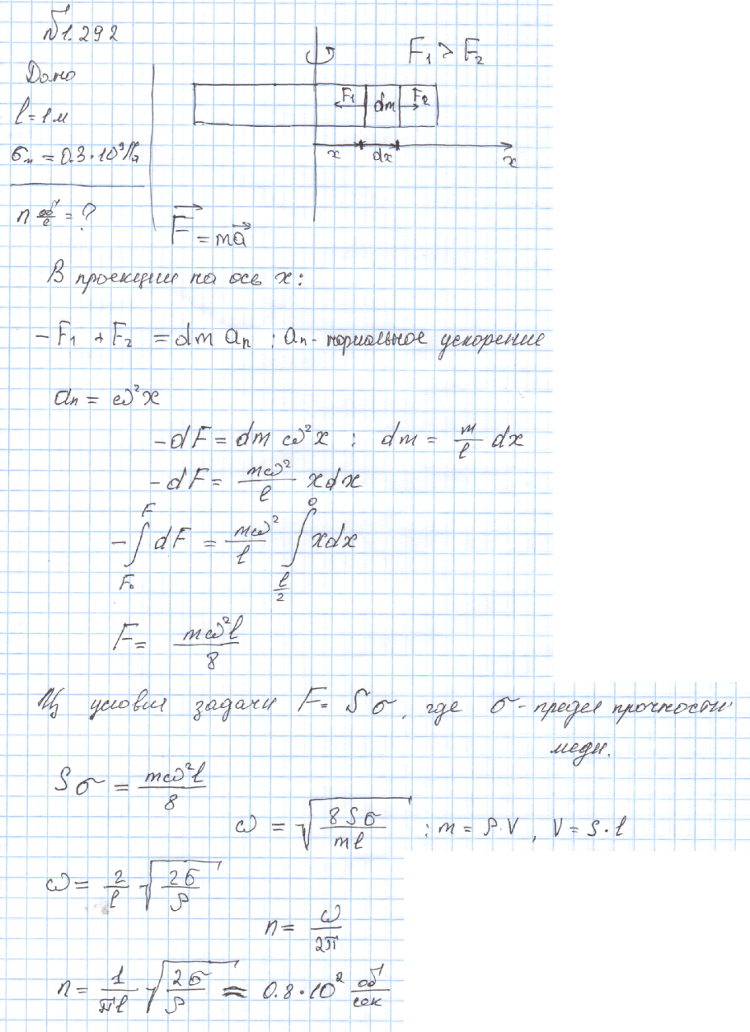 №1.292
Дано
l = 1 м
σₘ = 0.3·10⁹ Па
n об/с = ?
F₁ > F₂
F₁ dm F₂
x dx x
F⃗ = ma⃗
В проекции на ось x:
-F₁ + F₂ = dm aₙ ; aₙ - нормальное ускорение
aₙ = ω²x
-dF = dm ω²x ; dm = m/l dx
-dF = mω²/l xdx
-∫_{F₀}^{F} dF = mω²/l ∫_{l/2}^{0} xdx
F = mω²l/8
Из условия задачи F = Sσ, где σ - предел прочности
меди.
Sσ = mω²l/8
ω = √(8Sσ/ml) ; m = ρ·V, V = S·l
ω = 2/l √(2σ/ρ)
n = ω/2π
n = 1/πl √(2σ/ρ) ≈ 0.8·10² об/сек